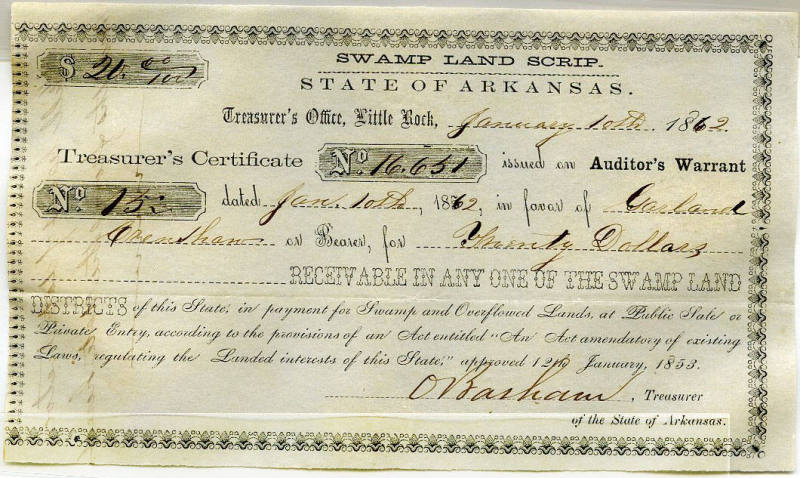 $ 20.00/100
SWAMP LAND SCRIP.
STATE OF ARKANSAS.
Treasurer's Office, Little Rock, January 10th 1862.
Treasurer's Certificate No. 16.651 issued on Auditor's Warrant
No. 15: dated Jan. 10th, 1862, in favor of Garland
Crenshaw or Bearer, for Twenty Dollars
RECEIVABLE IN ANY ONE OF THE SWAMP LAND
DISTRICTS of this State, in payment for Swamp and Overflowed Lands, at Public Sale or
Private Entry, according to the provisions of an Act entitled "An Act amendatory of existing
Laws, regulating the Landed interests of this State," approved 12th January, 1853.
O Basham, Treasurer
of the State of Arkansas.